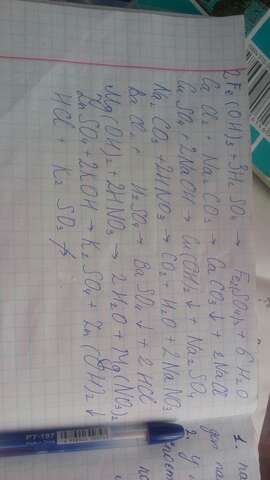 2Fe(OH)3 + 3H2SO4 → Fe2(SO4)3 + 6H2O
CaCl2 + Na2CO3 → CaCO3↓ + 2NaCl
CuSO4 + 2NaOH → Cu(OH)2↓ + Na2SO4
Na2CO3 + 2HNO3 → CO2 + H2O + 2NaNO3
BaCl2 + H2SO4 → BaSO4↓ + 2HCl
Mg(OH)2 + 2HNO3 → 2H2O + Mg(NO3)2
ZnSO4 + 2KOH → K2SO4 + Zn(OH)2↓
HCl + K2SO3 ↛
PT-157
1.
2.